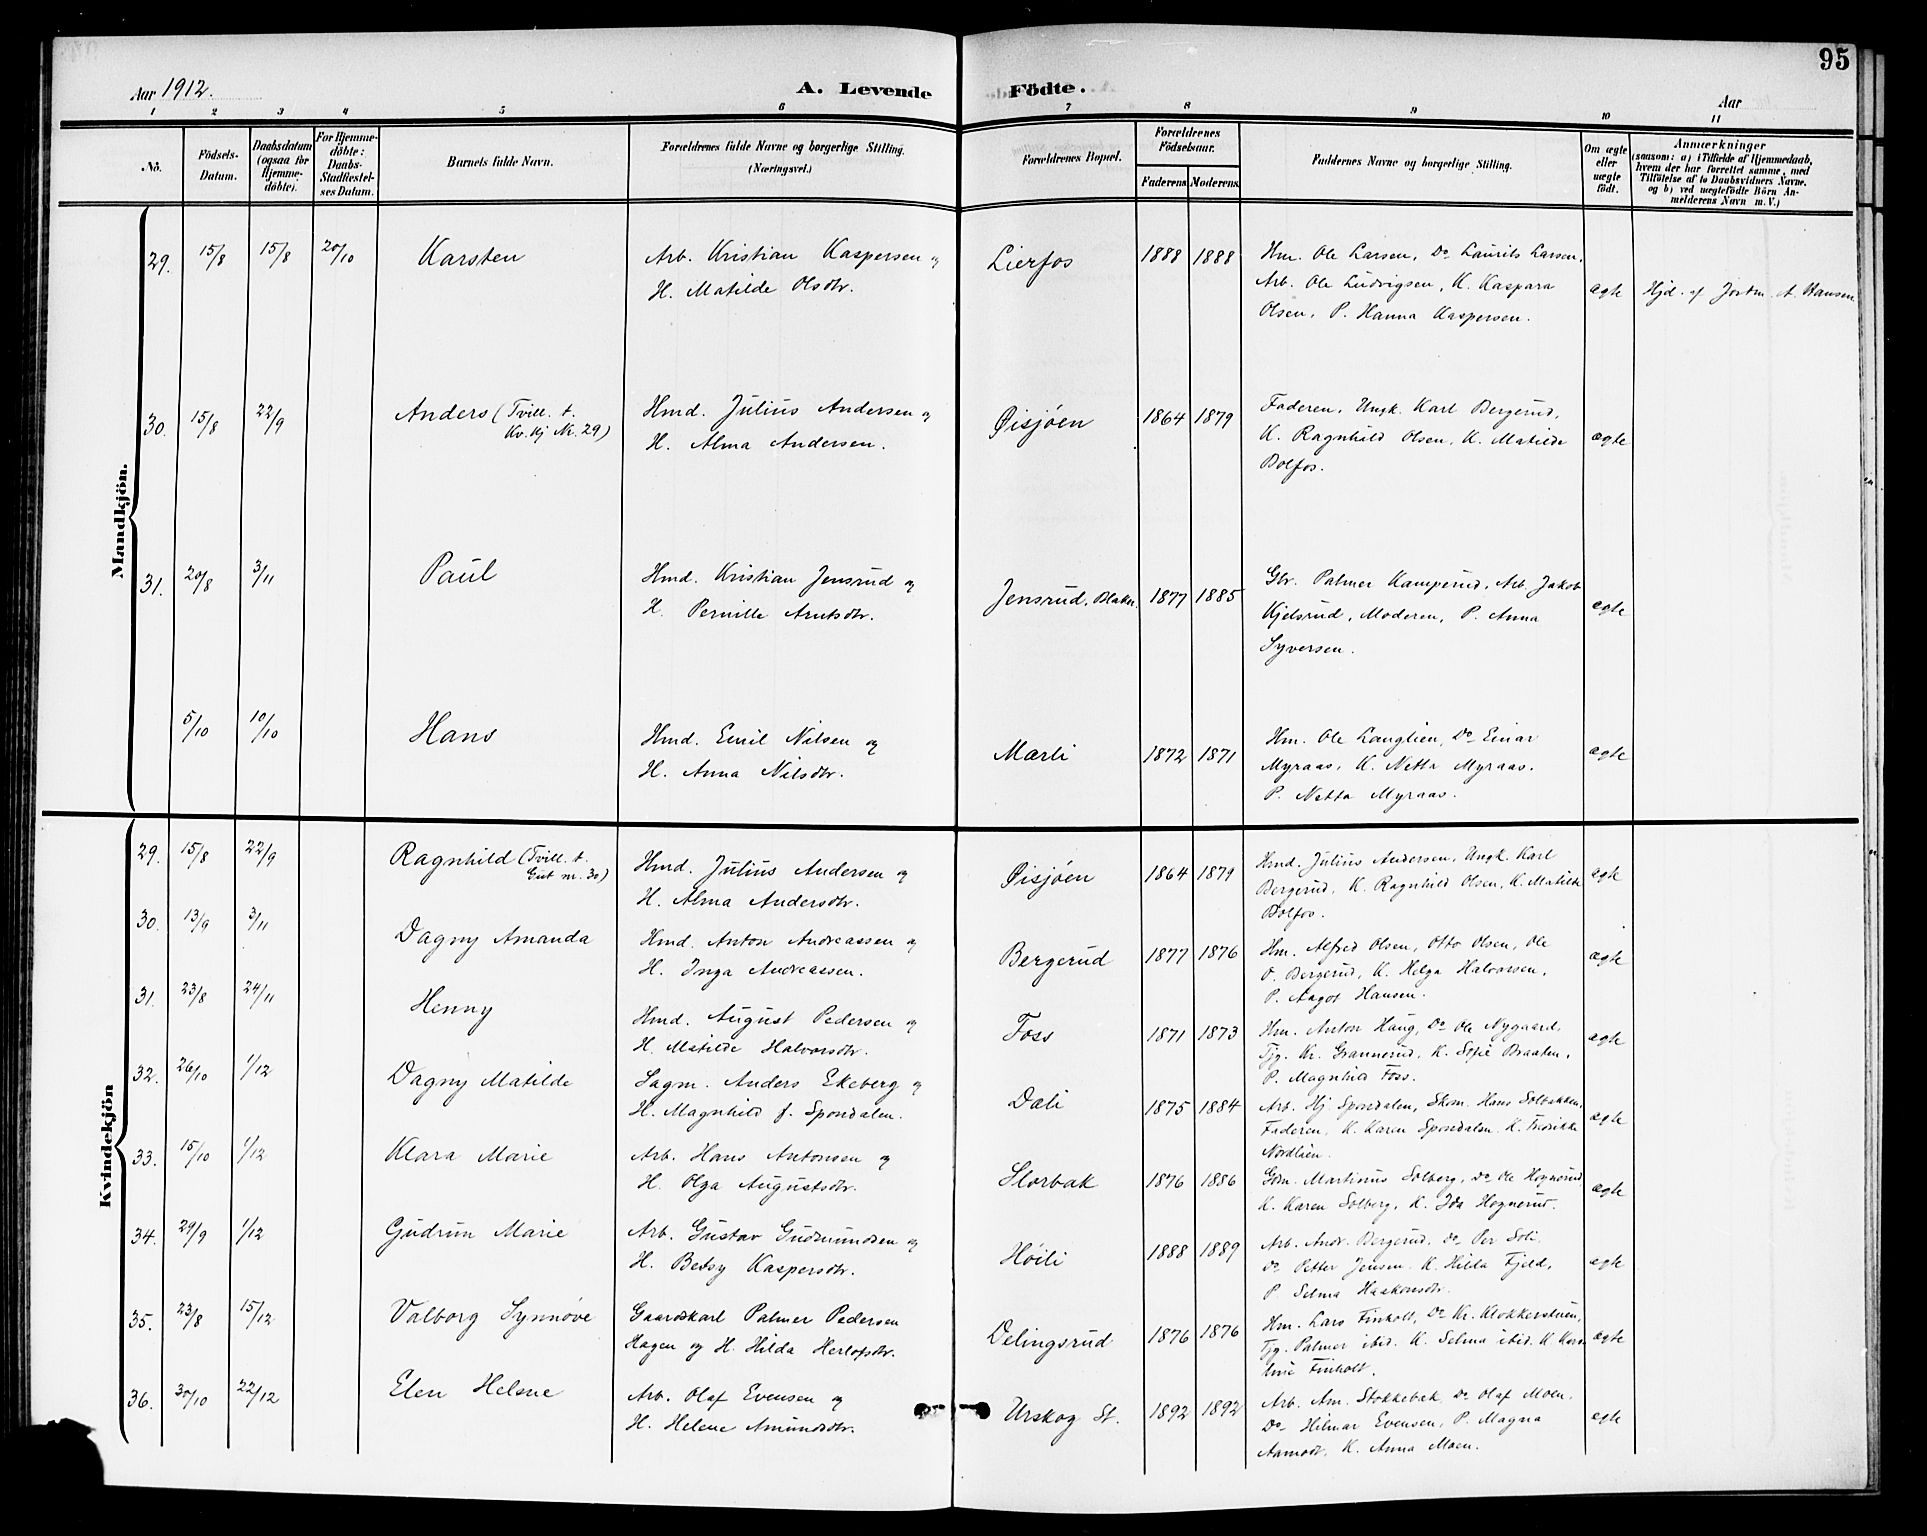 95
Aar 1912.
A. Levende Födte.
Aar
1 2 3 4 5 6 7 8 9 10 11
No.
Födsels-Datum.
Daabsdatum (ogsaa for Hjemme-döbte).
For Hjemme-döbte: Daabs-Stadfæstel-ses Datum.
Barnets fulde Navn.
Forældrenes fulde Navne og borgerlige Stilling. (Næringsvei.)
Forældrenes Bopæl.
Forældrenes Födselsaar.
Faderens Moderens
Faddernes Navne og borgerlige Stilling.
Om ægte eller uægte födt.
Anmærkninger
(saasom: a) i Tilfælde af Hjemmedaab,
hvem der har forrettet samme, med
Tilföielse af to Daabsvidners Navne,
og b) ved uægtefödte Börn An-
melderens Navn m. V.)
Mandkjön.
29. 15/8 15/8 20/10 Karsten
Arb. Kristian Kaspersen og
H. Matilde Olsdtr.
Lierfos 1888 1888
Hm. Ole Larsen, Do Laurits Larsen,
Arb. Ole Ludvigsen, K. Kaspara
Olsen, P. Hanna Kaspersen.
ægte
Hjd. af Jordm. A. Hansen
30. 15/8 22/9 Anders (Tvill. t.
Kv.kj Nr. 29)
Hmd. Julius Andersen og
H. Alma Andersen.
Øisjøen 1864 1879
Faderen, Ungk. Karl Bergerud,
K. Ragnhild Olsen, K. Matilde
Bolfos.
ægte
31. 20/8 3/11 Paul
Hmd. Kristian Jensrud og
H. Pernille Arntsdtr.
Jensrud, Blaker. 1877 1885
Gbr. Palmer Kamperud, Arb. Jakob
Kjelsrud, Moderen, P. Anna
Syversen.
ægte
5/10 10/10 Hans
Hmd. Emil Nilsen og
H. Anna Nilsdtr.
Marli 1872 1871
Hm. Ole Langlien, Do Einar
Myraas, K. Netta Myraas.
P. Netta Myraas.
ægte
Kvindekjön
29. 15/8 22/9 Ragnhild (Tvill. t.
Gut nr. 30)
Hmd. Julius Andersen og
H. Alma Andersdtr.
Øisjøen 1864 1879
Hmd. Julius Andersen, Ungk. Karl
Bergerud, K. Ragnhild Olsen, K. Matilde
Bolfos.
ægte
30. 13/9 3/11 Dagny Amanda
Hmd. Anton Andreassen og
H. Inga Andreassen.
Bergerud 1877 1876
Hm. Alfred Olsen, Otto Olsen, Ole
O. Bergerud, K. Helga Halvorsen,
P. Aagot Hansen.
ægte
31. 23/8 24/11 Henny
Hmd. August Pedersen og
H. Matilde Halvorsdtr.
Foss 1871 1873
Hm. Anton Haug, Do Ole Nygaard,
Tjg. Kr. Grannerud, K. Sofie Braaten,
P. Magnhild Foss.
ægte
32. 26/10 1/12 Dagny Matilde
Sagm. Anders Ekeberg og
H. Magnhild f. Spondalen.
Dali 1875 1884
Arb. Hj Spondalen, Skom. Hans Solbakken,
Faderen, K. Karen Spondalen. K. Fredrikke
Nordlien.
ægte
33. 15/10 1/12 Klara Marie
Arb. Hans Antonsen og
H. Olga Augustsdtr.
Slorbak 1876 1886
Gdm. Martinus Solberg, Do Ole Hognerud
K. Karen Solberg, K. Ida Hognerud.
ægte
34. 29/9 1/12 Gudrun Marie
Arb. Gustav Gudmundsen og
H. Betsy Kaspersdtr.
Høili 1888 1889
Arb. Andr. Bergerud, Do Per Soli,
Do Petter Jensen. K. Hilda Fjeld,
P. Selma Haakonsdtr.
ægte
35. 23/8 15/12 Valborg Synnøve
Gaardskarl Palmer Pedersen
Hagen og H. Hilda Herlofsdtr.
Delingsrud 1876 1876
Hm. Lars Finholt, Do Kr. Klokkerstuen,
Tjg. Palmer ibid. K. Selma ibid. K. Karo-
line Finholt.
ægte
36. 30/10 22/12 Elen Helene
Arb. Olaf Evensen og
H. Helene Amundsdtr.
Urskog St. 1892 1892
Arb. Am. Stokkebæk Do Olaf Moen,
Do Hilmar Evensen, P. Magna
Aamodt, K. Anna Moen.
ægte